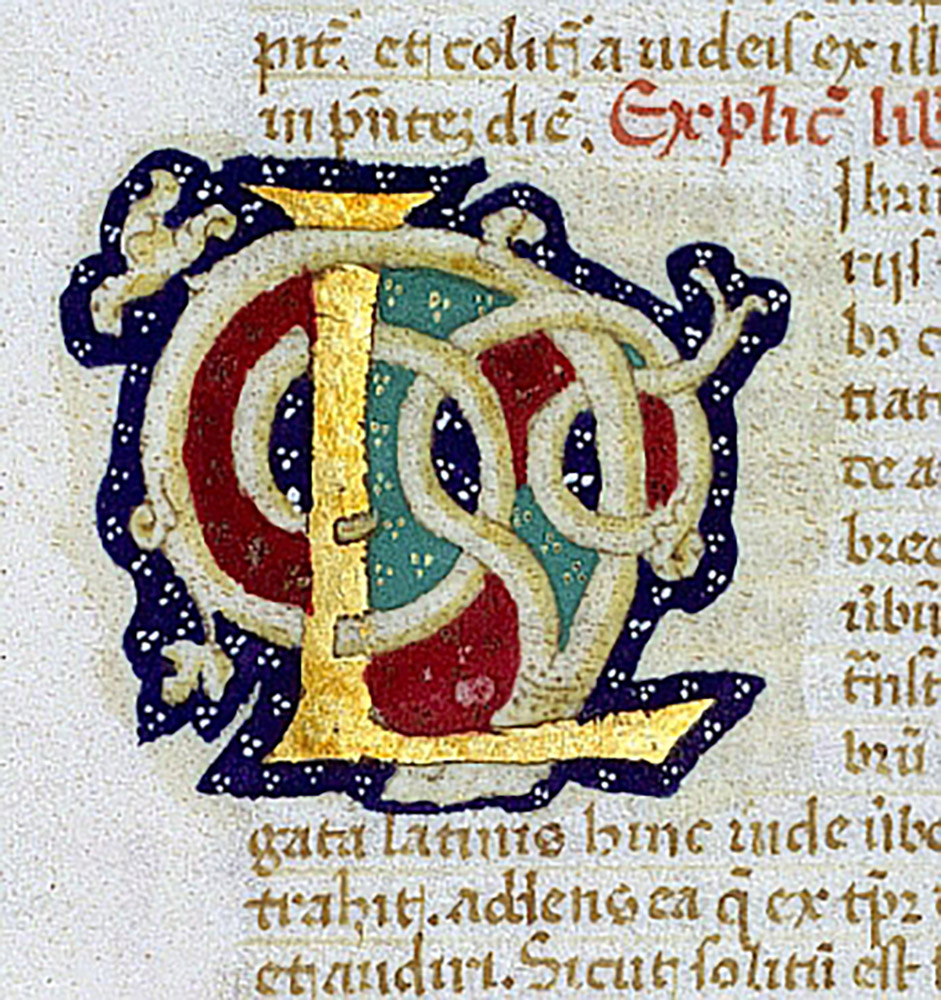 pit̃. et colit̃ a iudeis ex ill
in p̄ntez diē. Explic̃ lib
L ibrū
rijs
bꝫ c
tiat
te a
brec
ūbū
t̄nst
brū
gata latinis hinc inde ūbo
trahit. addens ea q̄ ex tp̄r
et audiri. Sicut solitū est